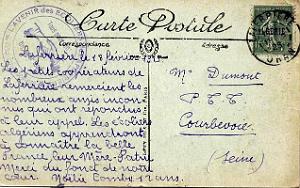 Carte Postale
Correspondance
Adresse
Laferrière le 18 février
Les petits coopérateurs de
Laferrière remercient les
nombreux amis incon-
nus qui ont répondu
à leur appel. Les écoliers
algériens apprendront
à connaître la belle
France, leur Mère-Patrie
Merci du fond de notre
cœur. Combs. 12 ans.
Mr Dumont
P.T.T
Courbevoie
(Seine)